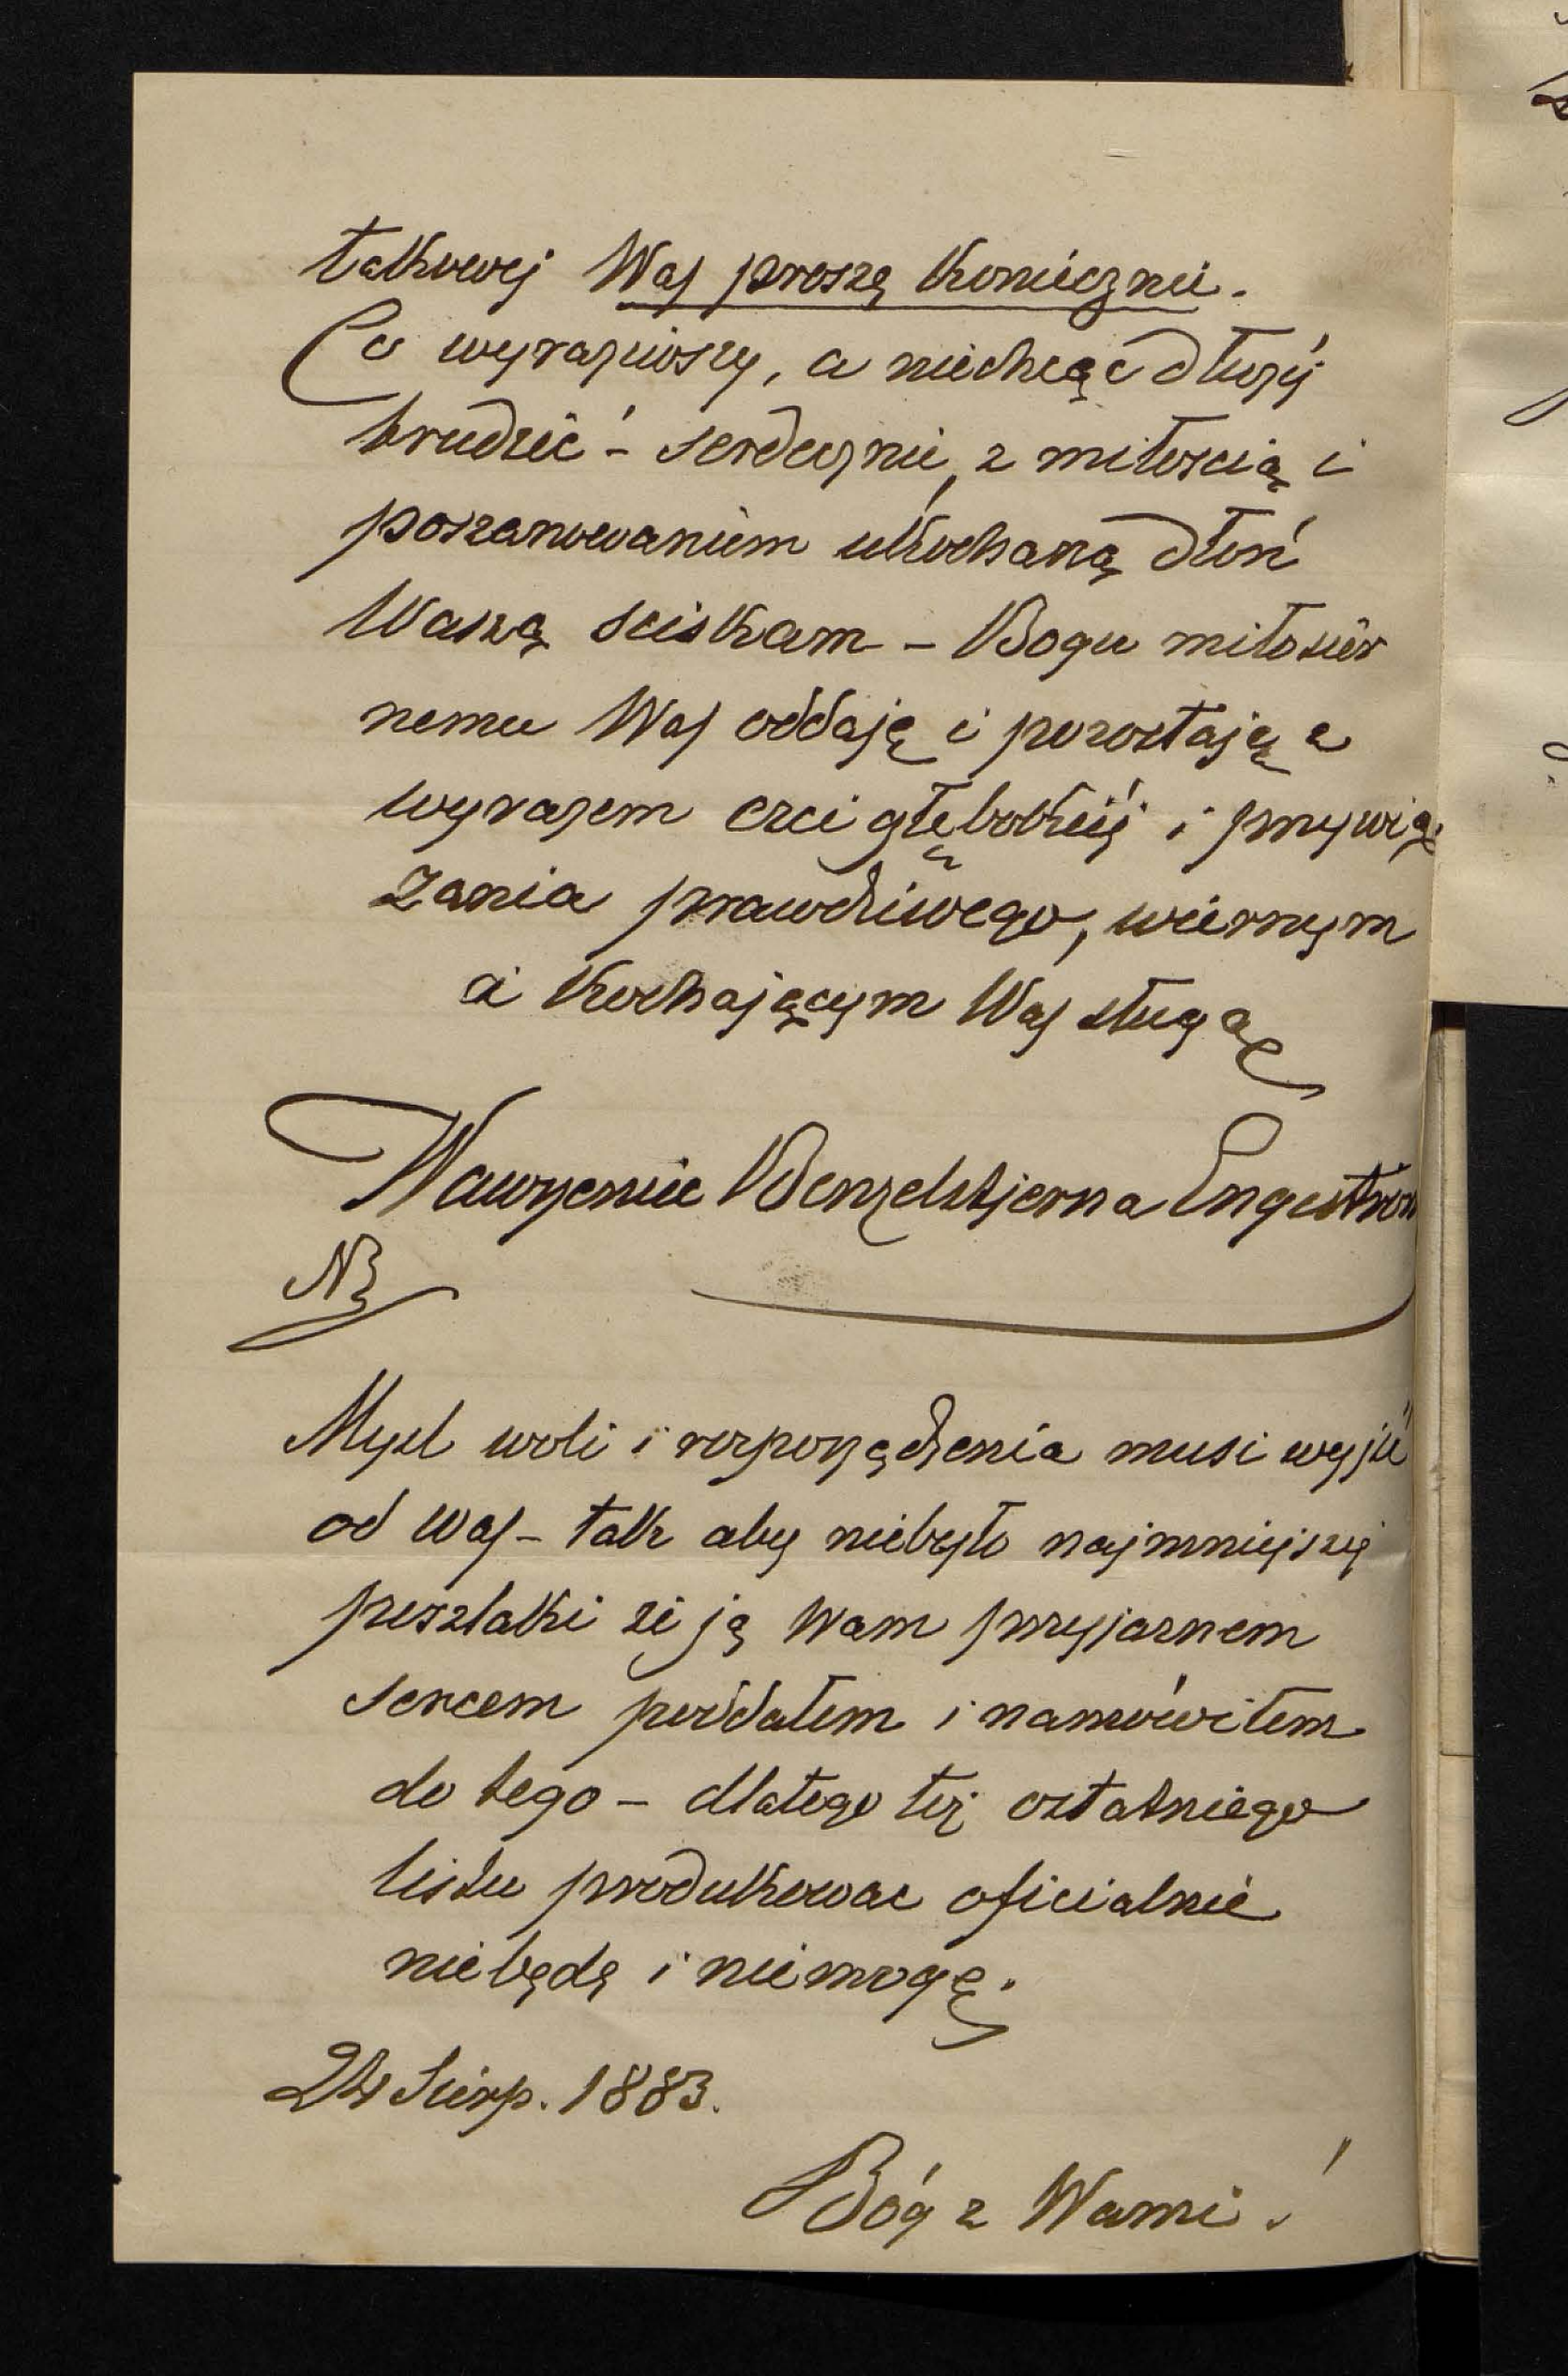 takowej Was proszę koniecznie.
Co wyraziwszy, a niechcąc dłużéj
trudzić – serdecznie, z miłoscią i
poszanowaniem ukochaną dłoń
Waszą sciskam – Bogu miłosier
nemu Was oddaję i pozostaję z
wyrazem czci głębokiéj i przywią
zania prawdziwego, wiernym
a kochającym Was sługą
Wawrzeniec Benzelstjerna Engestrom
NB
Mysl woli i rozporządzenia musi wyjść
od Was – tak aby niebyło najmniejszej
poszlaki że ją Wam przyjaznem
sercem poddałem i namówiłem
do tego – dlatego też ostatniego
listu produkowac oficialnie
niebędę i niemogę.
24 Sierp. 1883.
Bóg z Wami!